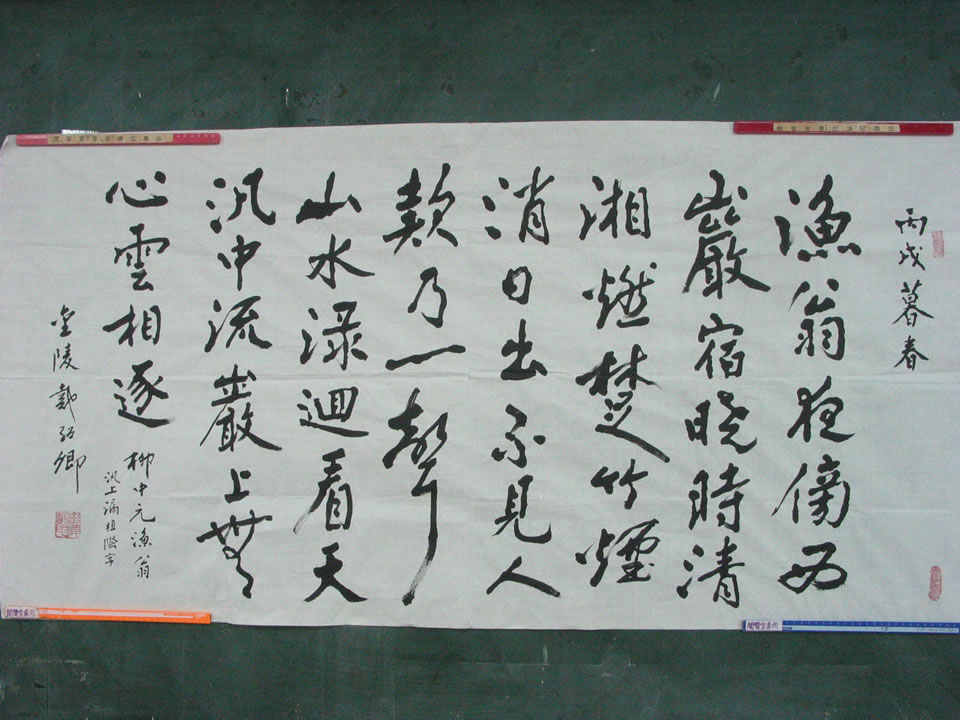 丙戌暮春
漁翁夜傍西
巖宿晓時清
湘燃楚竹煙
消日出不見人
欵乃一聲
山水渌迴看天
汎中流巖上無
心雲相逐
柳中元漁翁
汎上漏際字
金陵戴卿